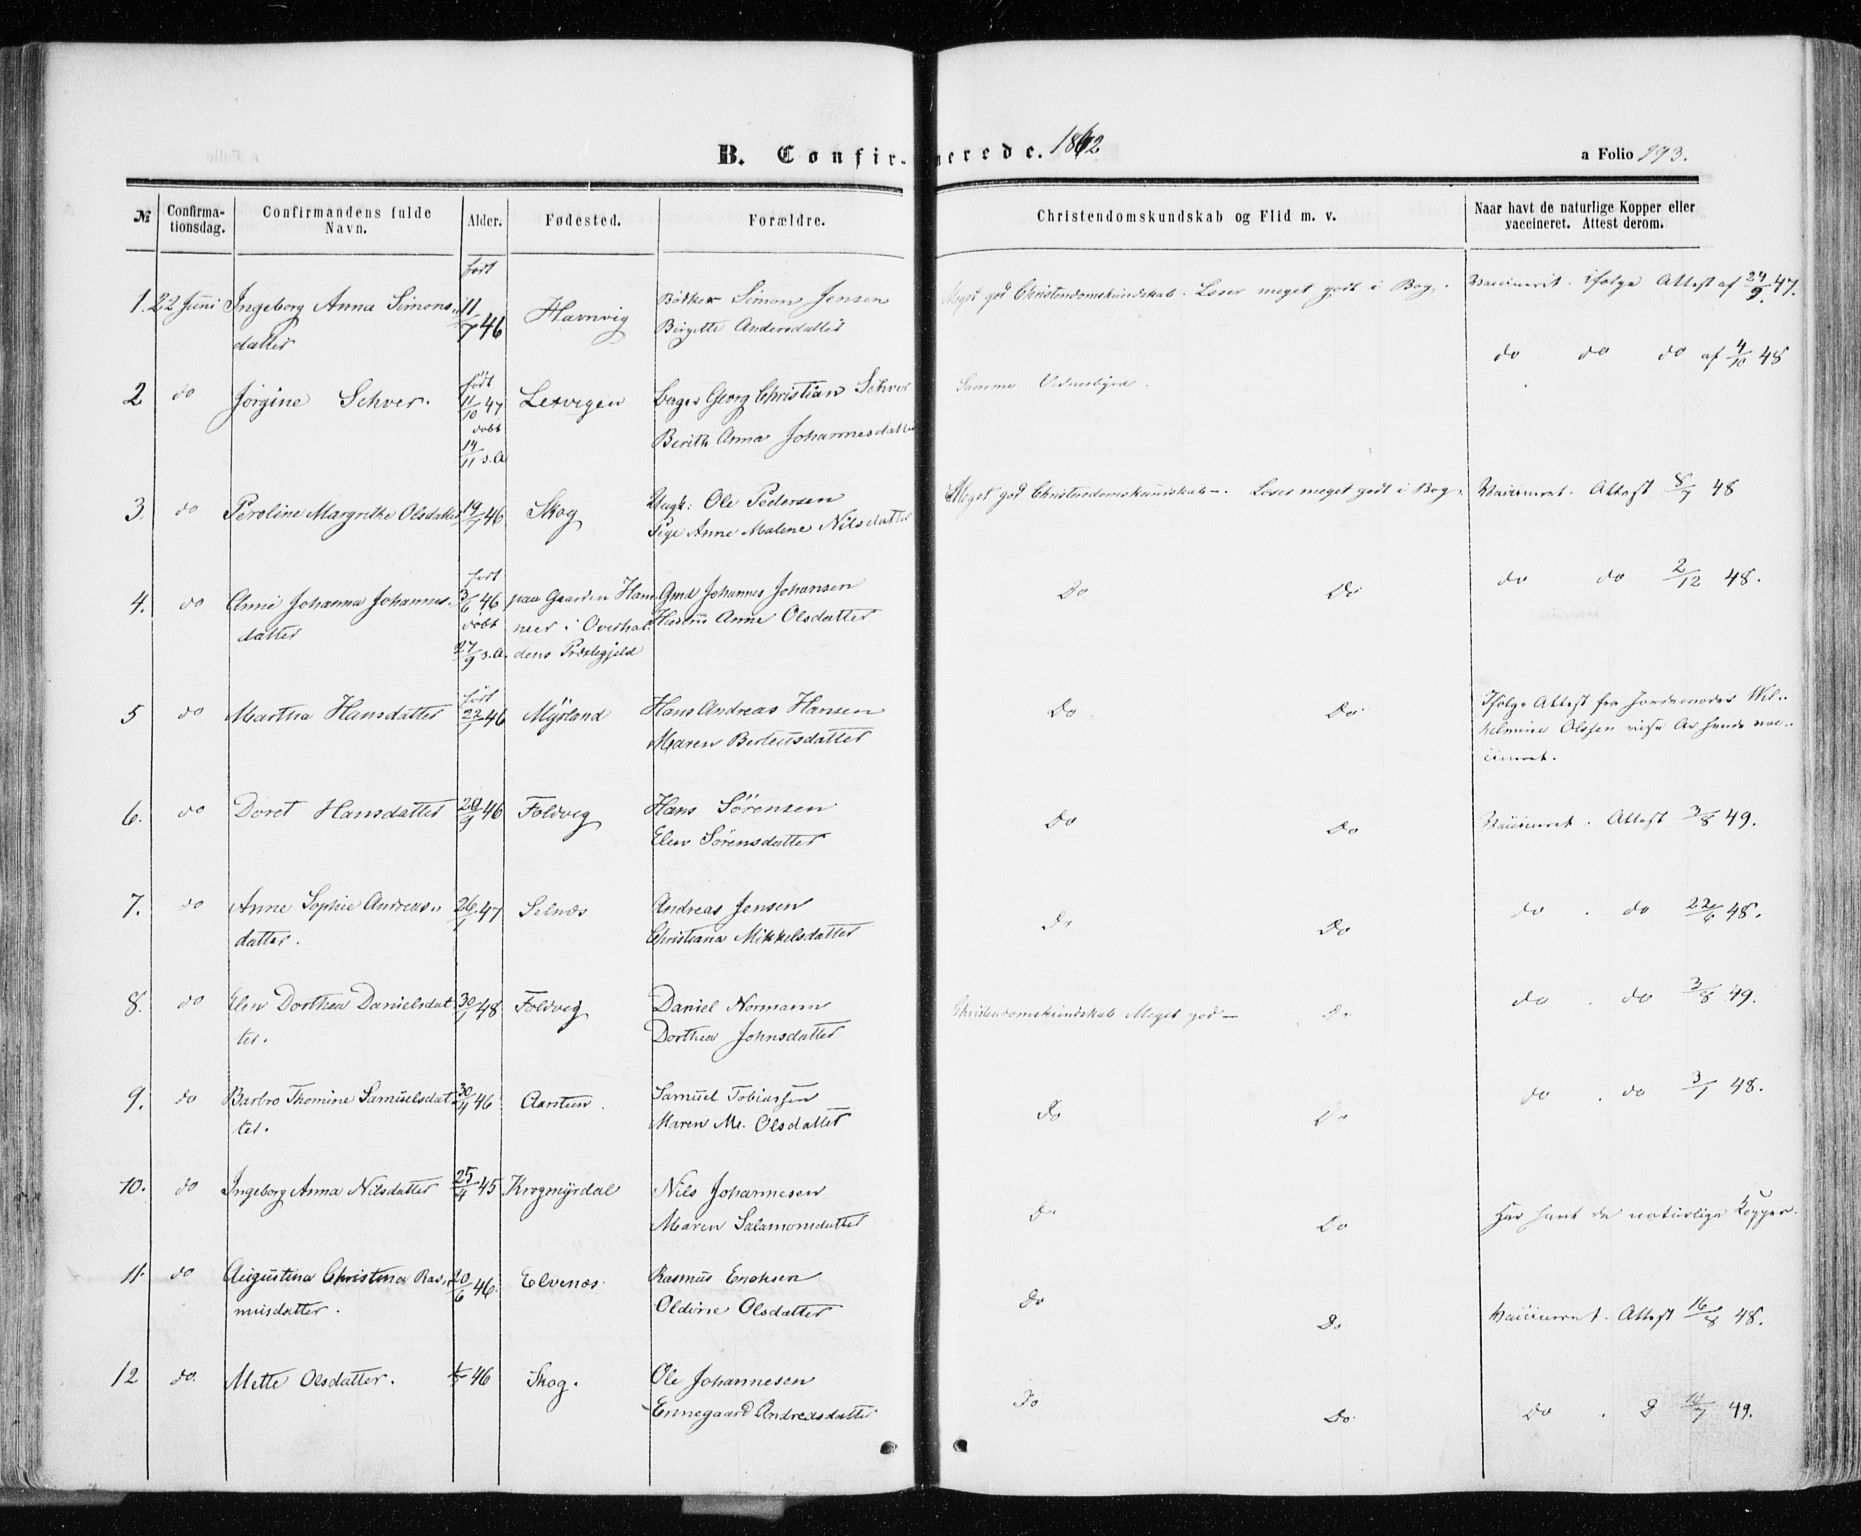 B. Confirmerede. 1862
a Folio 193.
№ Confirmationsdag. Confirmandens fulde Navn. Alder. Fødested. Forældre. Christendomskundskab og Flid m. v. Naar havt de naturlige Kopper eller vaccineret. Attest derom.
1. 22 Juni Ingeborg Anna Simons- født 11/7 46 Havnvig Bødker Simon Jensen Meget god Christendomskundskab. Læser meget godt i Bog. Vaccineret ifølge Attest af 24/9 47.
datter Birgitte Andersdatter
2 do Jørgine Schver. født 11/10 47 Georg Christian Schver Samme Vidnesbyrd. do do do af 4/10 48
døbt 14/11 s.A Berith Anna Johannesdatter
3 do Peroline Margrethe Olsdatter 19/7 46 Skog Ungk: Ole Pedersen Meget god Christendomskundskab. Læser meget godt i Bog. Vaccineret. Attest 8/7 48
Pige Anne Malene Nilsdatter
4. do Anne Johanna Johannes- født 3/6 46 paa Gaarden Ham- Gmd Johannes Johansen Do Do do do 2/12 48.
datter døbt mer i Overhal- Hustru Anne Olsdatter
27/9 s.A. dens Præstegjeld
5 do Martha Hansdatter født 22/7 46 Myrland Hans Andreas Hansen Do Do Ifølge Attest fra Jordemoder Wil-
Maren Berteusdatter helmine Olssen
6. do Doret Hansdatter 29/9 46 Foldvig Hans Sørensen Do Do Vaccineret. Attest 3/8 49.
Elen Sørensdatter
7. do Anne Sophie Andreas- 26/1 47 Selnæs Andreas Jensen Do Do do. do 22/6 48.
datter. Christiana Mikkelsdatter
8. do Elen Dorthea Danielsdat- 30/1 48 Foldvig Daniel Normann Christendomskundskab Meget god Do do. do 3/8 49.
ter. Dorthea Johnsdatter
9. do Barbro Thomine Samuelsdat- 30/11 46 Aarstun. Samuel Tobiassen Do Do do. do 3/1 48.
ter. Maren M. Olsdatter
10. do Ingeborg Anna Nilsdatter 25/4 45 Krogmyrdal Nils Johannesen Do Do Har havt de naturlige Kopper.
Maren Salamonsdatter
11. do Augustina Christina Ras- 20/6 46. Elvenæs Rasmus Erichsen Do Do Vaccineret. Attest 16/8 48.
musdatter. Oldine Olsdatter
12 do. Mette Olsdatter. 46 Skog. Ole Johannesen Do Do Do. 49.
Ennegaard Andreasdatter